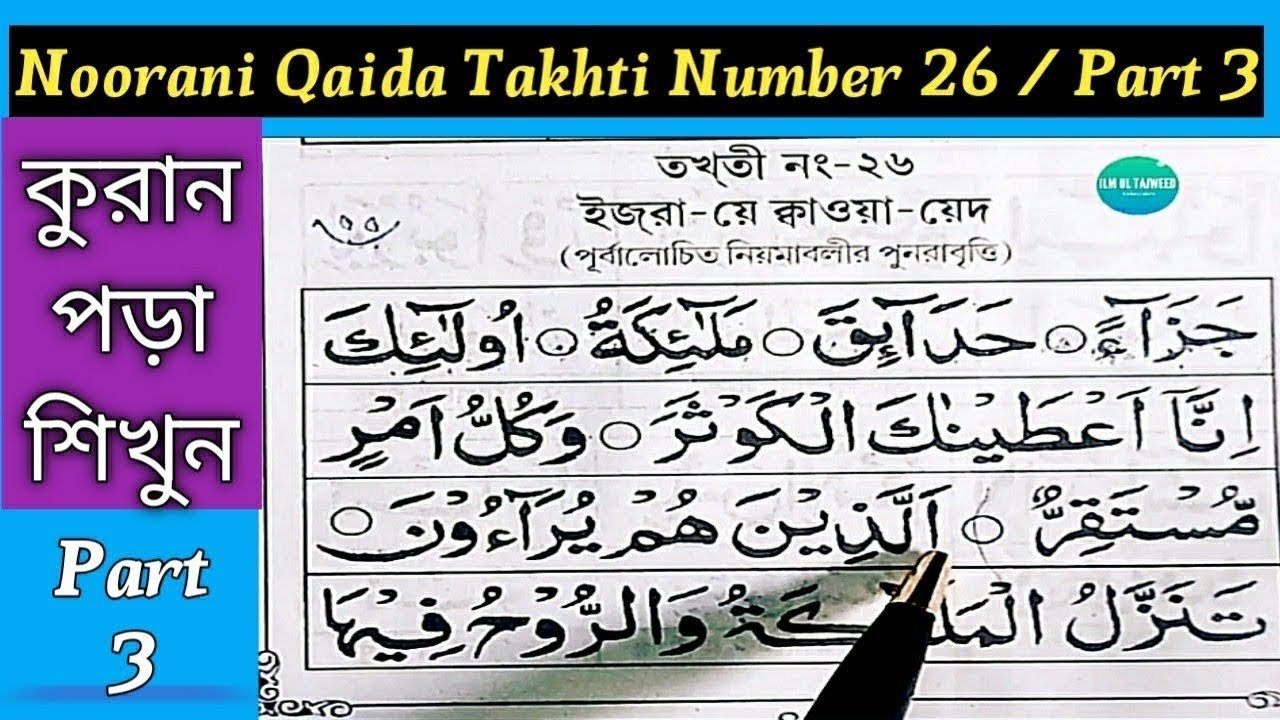 Noorani Qaida Takhti Number 26 / Part 3
কুরান
পড়া
শিখুন
Part
3
তখ্তী নং-২৬
ILM UL TAJWEED
ইজ্‌রা-য়ে ক্বাওয়া-য়েদ
(পূর্বালোচিত নিয়মাবলীর পুনরাবৃত্তি)
جَزَآءً ○ حَدَآئِقَ ○ مَلٰٓئِكَةُ ○ اُولٰٓئِكَ
اِنَّآ اَعْطَيْنٰكَ الْكَوْثَرَ ○ وَكُلُّ اَمْرٍ
مُّسْتَقِرٌّ ○ اَلَّذِيْنَ هُمْ يُرَآءُوْنَ ○
تَنَزَّلُ وَالرُّوْحُ فِيْهَا